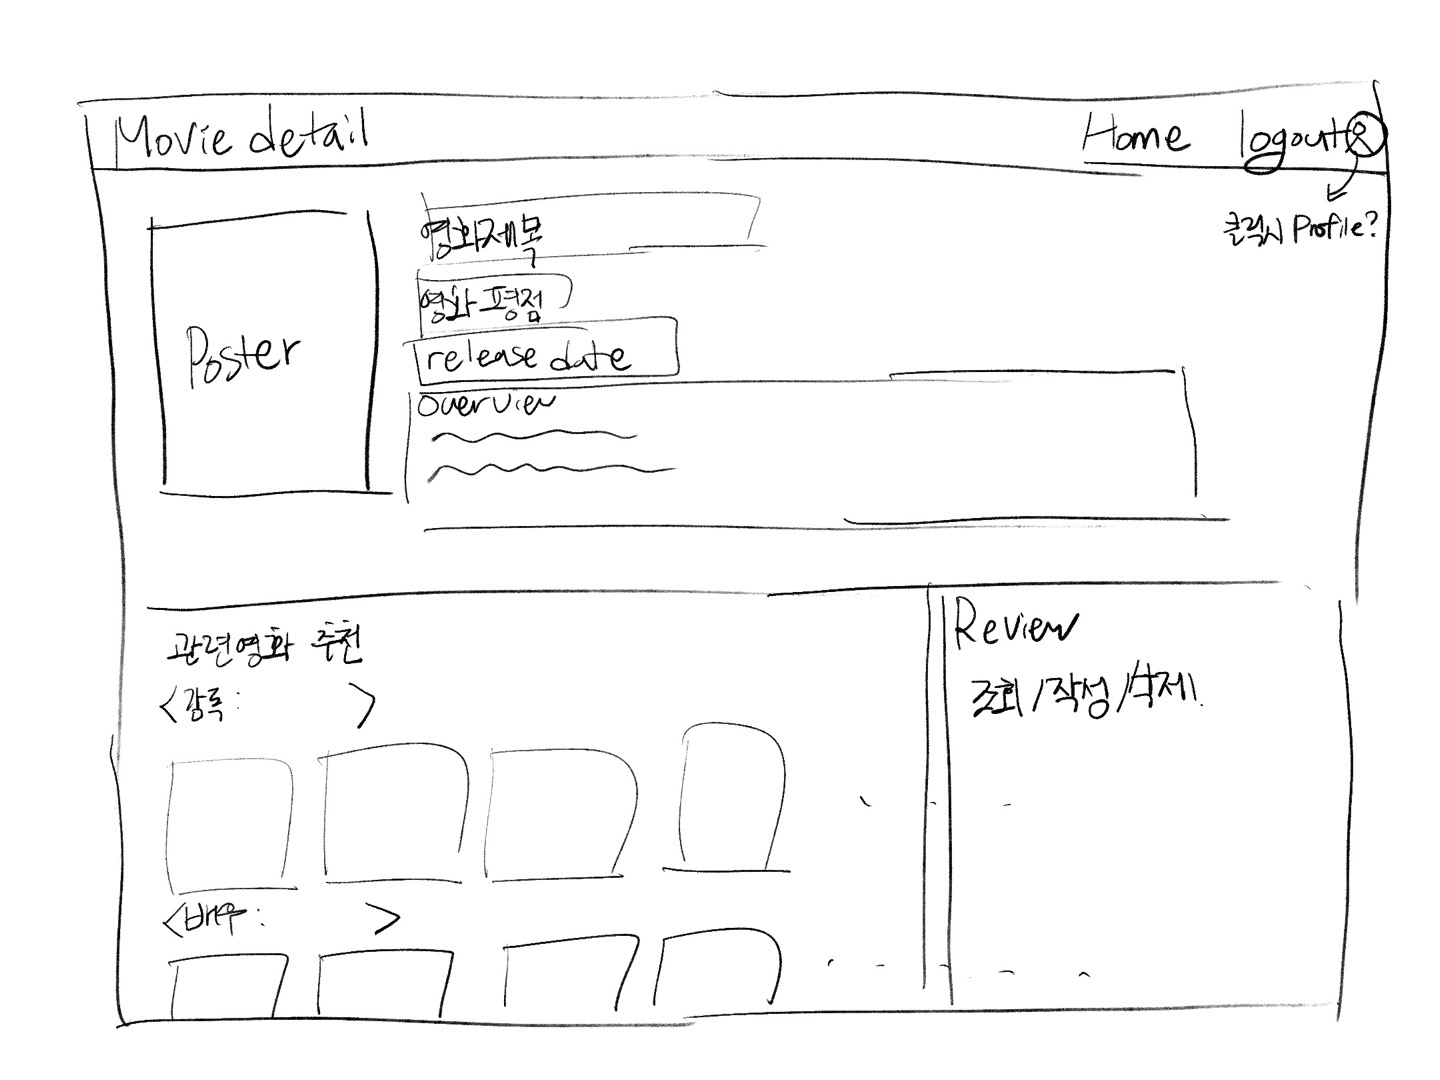 Movie detail
Home logout
클릭시 Profile?
Poster
영화제목
영화 평점
release date
overview
관련영화 추천
<감독: >
<배우: >
Review
조회/작성/삭제